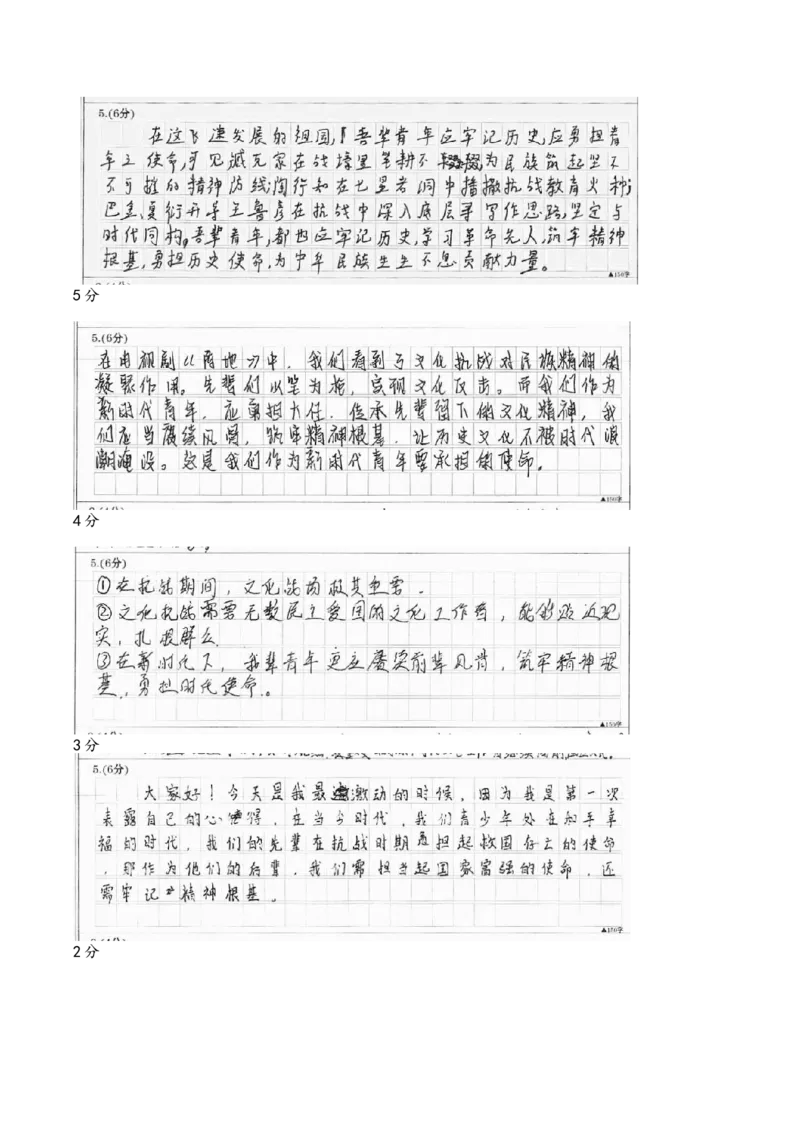 5.(6分)
在这飞速发展的祖国,吾辈青年应牢记历史,应勇担青
年之使命,可见臧克家在战壕里笔耕不辍,为民族筑起坚不
不可摧的精神防线;陶行知在七星岩洞中播撒抗战教育火种;
巴金、夏衍开导王鲁彦在抗战中深入底层寻写作思路,坚定与
时代同构,吾辈青年,都也应牢记历史,学习革命先人,筑牢精神
根基,勇担历史使命,为中华民族生生不息贡献力量。
▲150字
5分
5.(6分)
在电视剧《阵地》中,我们看到了文化抗战对民族精神的
凝聚作用。先辈们以笔为枪,实现文化反击。而我们作为
新时代青年,应勇担大任,传承先辈留下的文化精神,我
们应当赓续风骨,筑牢精神根基,让历史文化不被时代浪
潮淹没。这是我们作为新时代青年要承担的使命。
▲150字
4分
5.(6分)
①在抗战期间,文化战场极其重要.
②文化抗战需要无数民主爱国的文化工作者,能够贴近现
实,扎根群众.
③在新时代下,我辈青年更应赓续前辈风骨,筑牢精神根
基,勇担时代使命。
▲150字
3分
5.(6分)
大家好!今天是我最激动的时候,因为我是第一次
表露自己的心得,在当今时代,我们青少年处在和平幸
福的时代,我们的先辈在抗战时期担起救国存亡的使命
,那作为他们的后辈,我们需担当起国家富强的使命,还
需牢记精神根基。
▲150字
2分